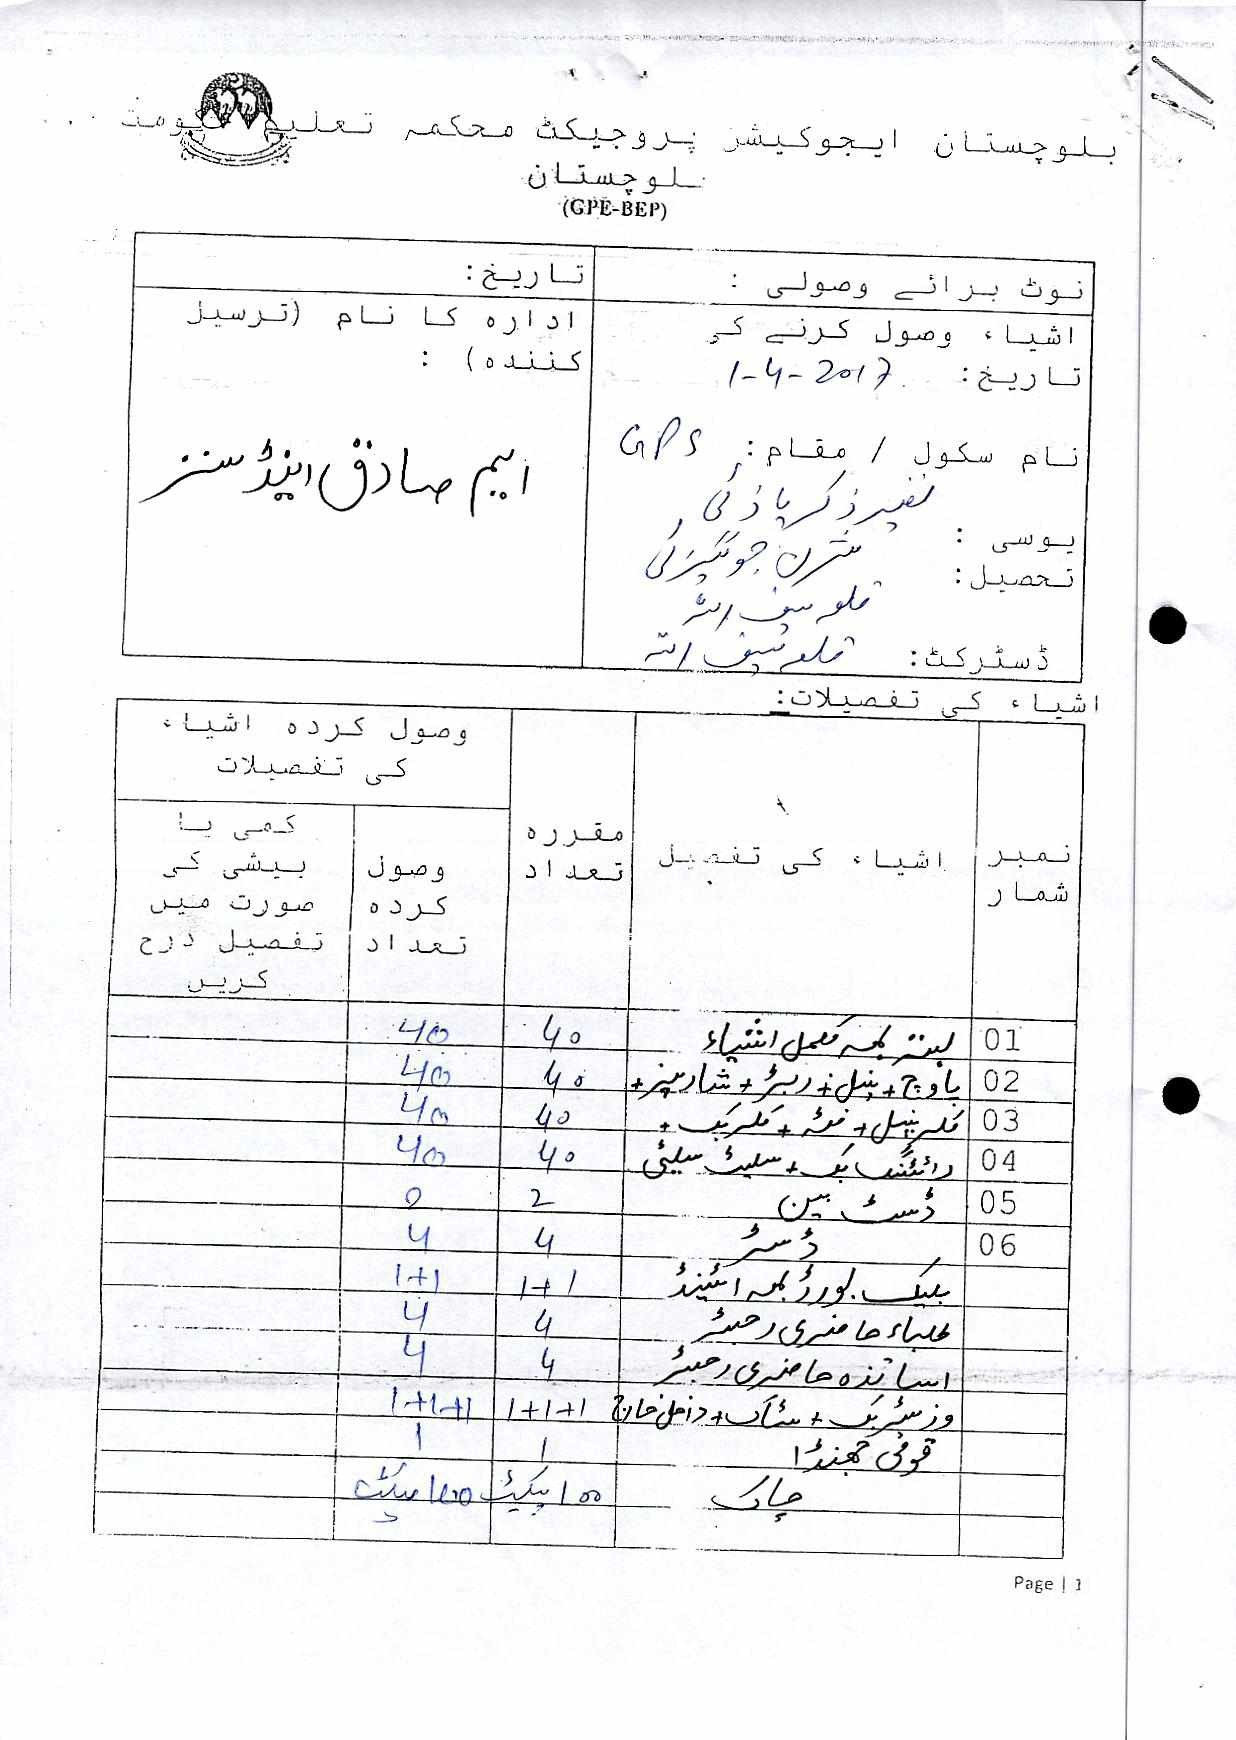 بلوچستان ایجوکیشن پروجیکٹ محکمہ تعلیم حکومت
بلوچستان
(GPE-BEP)
نوٹ برائے وصولی :
تاریخ:
اشیاء وصول کرنے کی
تاریخ: 1-4-2017
نام سکول / مقام: GPS
یوسی :
تحصیل:
قلعہ سیف اللہ
ڈسٹرکٹ: قلعہ سیف اللہ
ادارہ کا نام (ترسیل
کنندہ) :
ایم صادق اینڈ سنز
اشیاء کی تفصیلات:
نمبر شمار
اشیاء کی تفصیل
مقررہ تعداد
وصول کردہ اشیاء
کی تفصیلات
وصول کردہ تعداد
کمی یا
بیشی کی
صورت میں
تفصیل درج
کریں
01 بستر بمعہ مکمل اشیاء 40 40
02 پاؤچ + پنسل + ربڑ + شارپنر + 40 40
03 کلر پنسل + فٹہ + کلر بک + 40 40
04 رائٹنگ بک + سلیٹ سلیٹی 40 40
05 ڈسٹ بین 2 2
06 ڈسٹر 4 4
بلیک بورڈ بمعہ اسٹینڈ 1+1 1+1
طلباء حاضری رجسٹر 4 4
اساتذہ حاضری رجسٹر 4 4
وزیٹر بک + سٹاک + داخل خارج 1+1+1 1+1+1
قومی جھنڈا 1 1
چاک 100 پیکٹ 100 پیکٹ
Page | 1